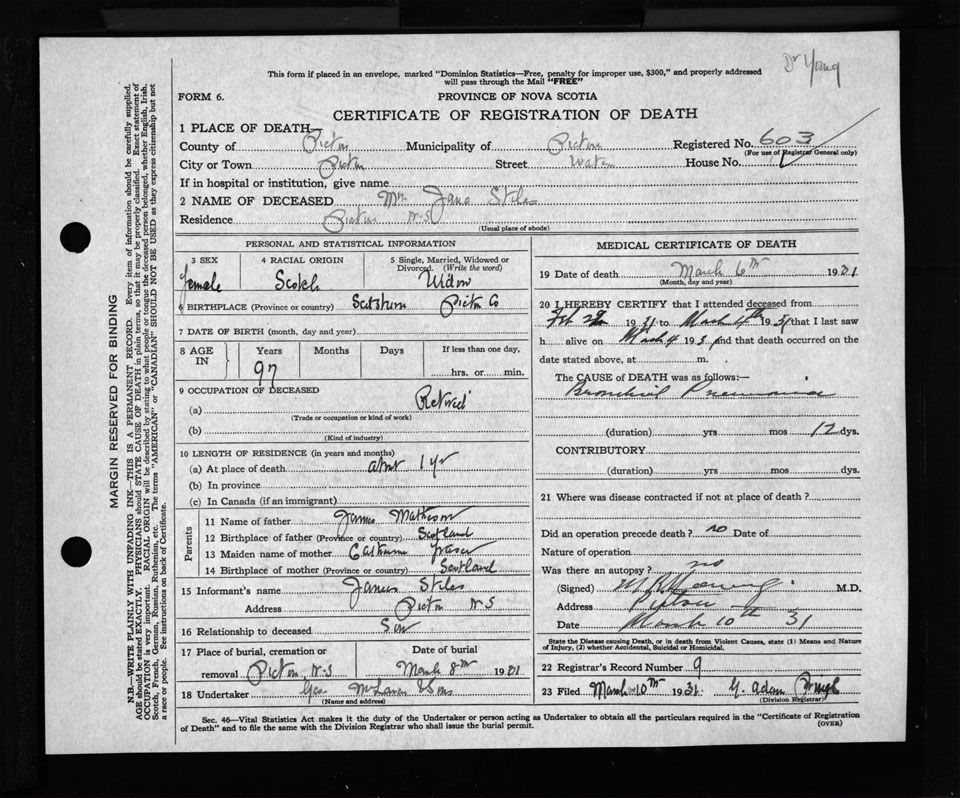 Dr Young
This form if placed in an envelope, marked "Dominion Statistics—Free, penalty for improper use, $300," and properly addressed
will pass through the Mail "FREE"
FORM 6.
PROVINCE OF NOVA SCOTIA
CERTIFICATE OF REGISTRATION OF DEATH
1 PLACE OF DEATH—
County of Pictou Municipality of Pictou Registered No. 603
(For use of Registrar General only)
City or Town Pictou Street Water House No.
If in hospital or institution, give name
2 NAME OF DECEASED Mrs. Jane Stiles
Residence Pictou N.S
(Usual place of abode)
PERSONAL AND STATISTICAL INFORMATION
3 SEX 4 RACIAL ORIGIN 5 Single, Married, Widowed or
Divorced. (Write the word)
Female Scotch Widow
6 BIRTHPLACE (Province or country) Scotsburn Pictou Co
7 DATE OF BIRTH (month, day and year)
8 AGE IN Years Months Days If less than one day,
97 hrs. or min.
9 OCCUPATION OF DECEASED
(a) Retired
(Trade or occupation or kind of work)
(b)
(Kind of industry)
10 LENGTH OF RESIDENCE (in years and months)
(a) At place of death about 1 yr
(b) In province
(c) In Canada (if an immigrant)
Parents
11 Name of father James Matheson
12 Birthplace of father (Province or country) Scotland
13 Maiden name of mother Catherine Fraser
14 Birthplace of mother (Province or country) Scotland
15 Informant's name James Stiles
Address Pictou N S
16 Relationship to deceased Son
17 Place of burial, cremation or Date of burial
removal Pictou N.S March 8th 1931
18 Undertaker Geo. McLaren & Sons
(Name and address)
MEDICAL CERTIFICATE OF DEATH
19 Date of death March 6th 1931
(Month, day and year)
20 I HEREBY CERTIFY that I attended deceased from
Feb 22 1931 to March 4th 1931 that I last saw
h alive on March 4 193 and that death occurred on the
date stated above, at m.
The CAUSE OF DEATH was as follows:—
Bronchial Pneumonia
(duration) yrs mos 12 dys.
CONTRIBUTORY
(duration) yrs mos dys.
21 Where was disease contracted if not at place of death?
Did an operation precede death? no Date of
Nature of operation
Was there an autopsy? no
(Signed) Young M.D.
Address Pictou
Date March 10th 31
State the Disease causing Death, or in death from Violent Causes, state (1) Means and Nature
of Injury, (2) whether Accidental, Suicidal or Homicidal.
22 Registrar's Record Number 9
23 Filed March 10th 1931. G. Adam
(Division Registrar)
Sec. 46—Vital Statistics Act makes it the duty of the Undertaker or person acting as Undertaker to obtain all the particulars required in the "Certificate of Registration
of Death" and to file the same with the Division Registrar who shall issue the burial permit.
(OVER)
MARGIN RESERVED FOR BINDING
N.B.—WRITE PLAINLY WITH UNFADING INK—THIS IS A PERMANENT RECORD. Every item of information should be carefully supplied.
AGE should be stated EXACTLY. PHYSICIANS should STATE CAUSE OF DEATH in plain terms, so that it may be properly classified. Exact statement of
OCCUPATION is very important. RACIAL ORIGIN will be described by stating to what people or tongue the deceased person belonged, whether English, Irish,
Scotch, French, German, Russian, Ruthenian, etc. The terms "AMERICAN" or "CANADIAN" SHOULD NOT BE USED as they express citizenship but not
a race or people. See instructions on back of Certificate.